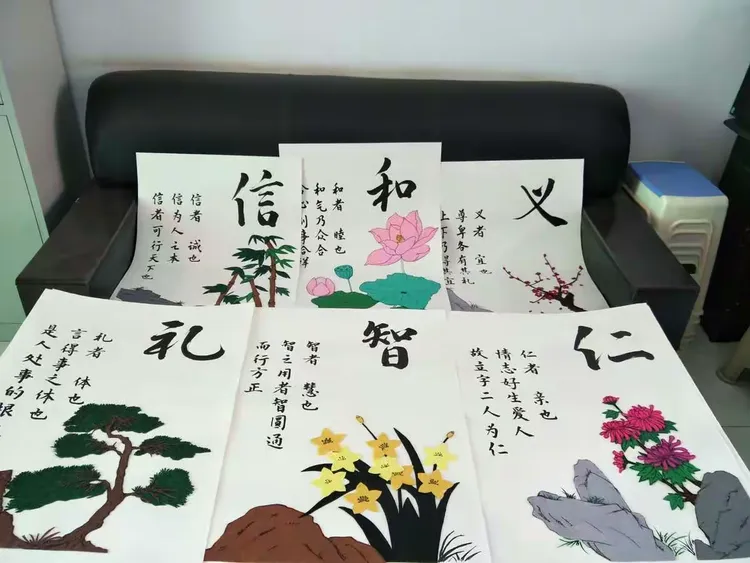 信
信者 诚也
信为人之本
信者可行天下也
和
和者 睦也
和气乃众合
心则事合
义
义者 宜也
尊卑各有其礼
下乃得其宜
礼
礼者 体也
言得事之体也
是人处事的
智
智者 慧也
智之用者智圆通
而行方正
仁
仁者 亲也
情志好生爱人
故立字二人为仁